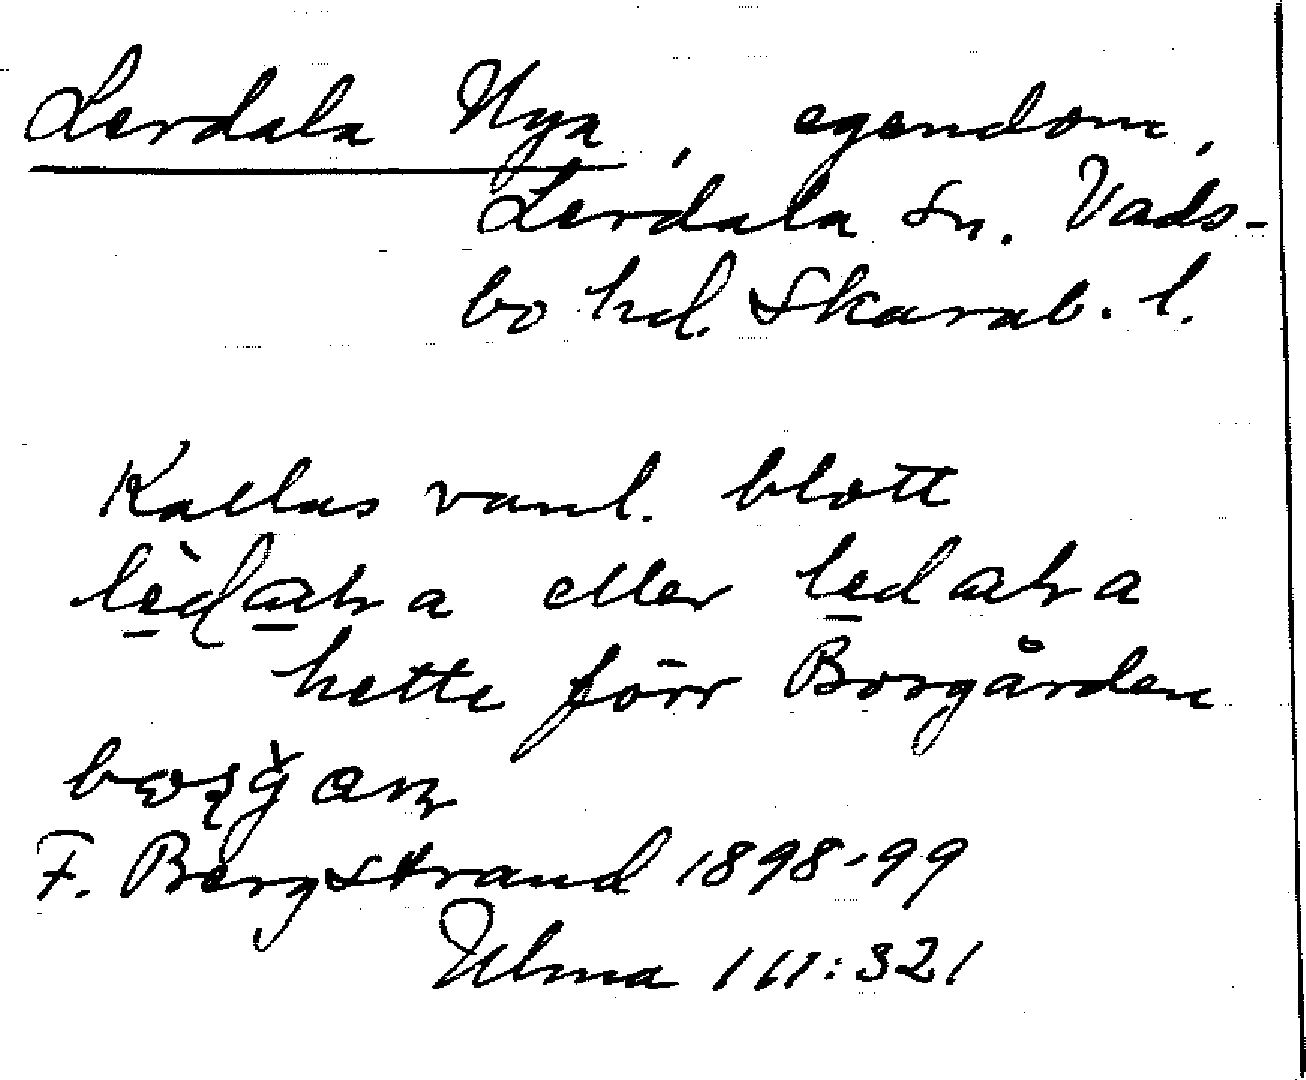 Lerdala Nya, egendom,
Lerdala sn. Vads-
bo hd. Skarab. l.
Kallas vanl. blott
eller
hette förr Borgården
F. Bergstrand 1898-99
Ulma 111:321